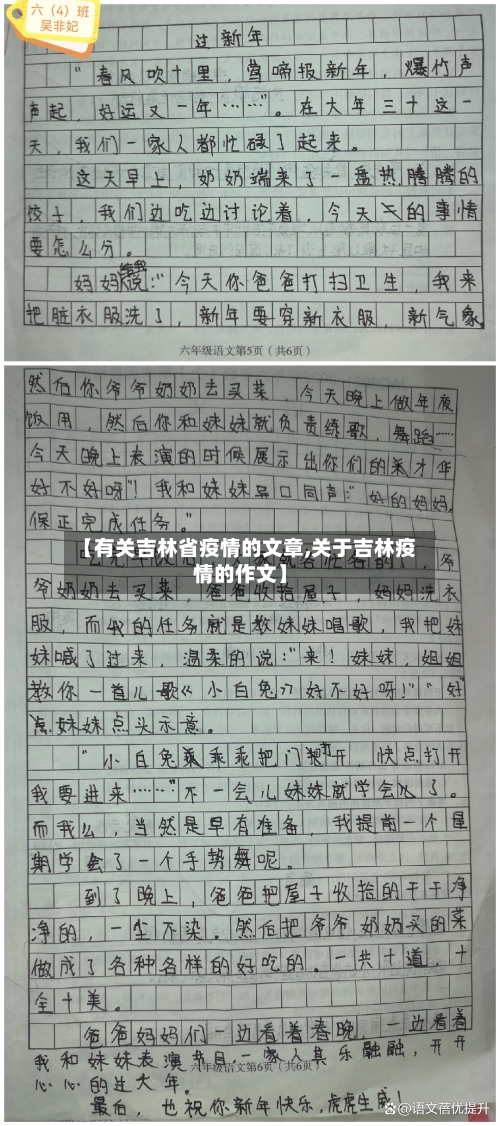 六（4）班
吴非妃
过新年
“春风吹十里，莺啼报新年，爆竹声
声起，好运又一年……”。在大年三十这一
天，我们一家人都忙碌了起来。
这天早上，奶奶端来了一盘热腾腾的
饺子，我们边吃边讨论着，今天的事情
要怎么分。
妈妈给我说：“今天你爸爸打扫卫生，我来
把脏衣服洗了，新年要穿新衣服，新气象。
六年级语文第5页（共6页）
然后你爷爷奶奶去买菜，今天晚上做年夜
饭用，然后你和妹妹就负责练歌，舞蹈……
今天晚上表演的时候展示出你们的才华
好不好呀”！我和妹妹异口同声：“好的妈妈，
保正完成任务。”
【有关吉林省疫情的文章,关于吉林疫
情的作文】
爷爷奶奶去买菜，爸爸收拾屋子，妈妈洗衣
服，而我的任务就是教妹妹唱歌，我把妹
妹喊了过来，温柔的说：“来！妹妹，姐姐
教你一首儿歌《小白兔》好不好呀！”“好”
妹妹点头示意。
“小白兔乖乖把门打开，快点打开
我要进来……”不一会儿妹妹就学会了。
而我么，当然是早有准备，我提前一个星
期学会了一个手势舞呢。
到了晚上，爸爸把屋子收拾的干干净
净的，一尘不染。然后把爷爷奶奶买的菜
做成了各种各样的好吃的。一共十道，十
全十美。
爸爸妈妈们一边看着春晚，一边看着
我和妹妹表演节目，一家人其乐融融，开开
六年级语文第6页（共6页）
心心的过大年。
最后，也祝你新年快乐，虎虎生威！
@语文蓓优提升